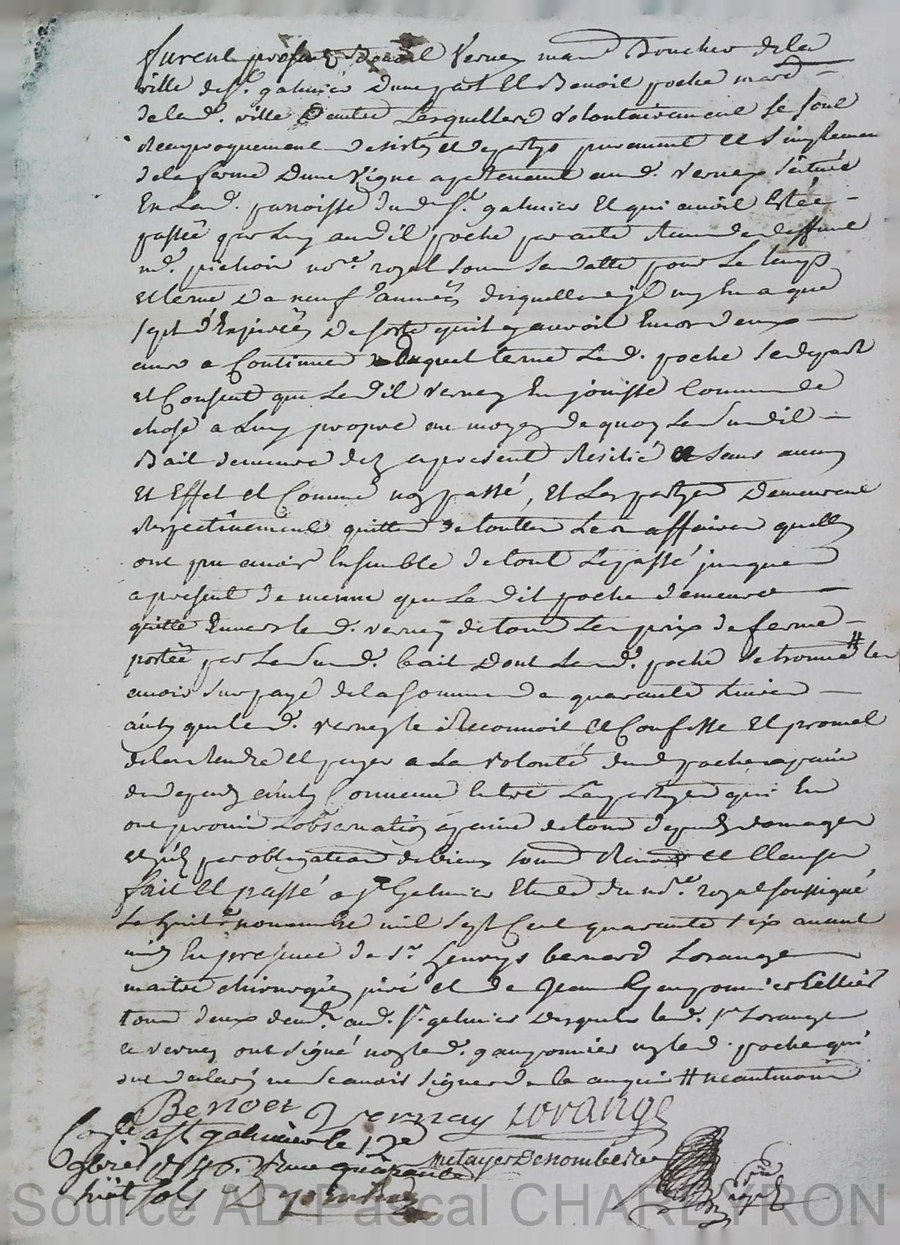 furent presents Benoit Vernay mard Boucher de la
ville de St. galmier dune part Et Benoit poche mard
de lad. ville Dautre Lesquelles volontairement se sont
Reciproquement desistés et departys purement et simplement
de la ferme Dune Vigne apartenant aud. Vernay scituée
En Lad. parroisse dud. St. galmier Et qui avoit Estée
passée par Luy audit poche par acte Receu de deffunt
me. pichon nore. royal sous sa datte pour Le temps
et terme De neuf années desquelles il ny En a que
sept d'Expirées De sorte quil y auroit Encor deux
ans a Continuer duquel terme Led. poche se depart
et Consent que Ledit Vernay En jouisse Comme de
chose a Luy propre au moyen de quoy Le susdit
Bail demeure dez apresent Resilié et sans aucun
Et Effet et Comme non passé, et Les partyes Demeurent
respectivement quittes de touttes Les affaires quelles
ont pu avoir Ensemble de tout Le passé jusques
a present de meme que Ledit poche demeure
quitte Envers led. vernay de tous Les prix de ferme
portée par Le susd. bail Dont Led. poche se trouve # Les
avoir surpayé de la somme de quarante Livres
ainsy que led. Vernay le Reconnoit et Confesse Et promet
de les Rendre et payer a La volonté dud poche a peine
de depens ainsy Convenu Entre Les partyes qui En
ont promis Lobservation a peine de tous depens domages
et par obligation de biens sous Renon et Clauses
fait et passé a St Galmier Etude du nore. royal soussigné
Le huite novembre mil sept Cent quarante six avant
midy En presence de sr. bernard Lorange
maitre chirurgien juré et de Jean Ganyonnier tellier
tous deux demt. aud. St. galmier Desquels led. sr Lorange
et vernay ont signé non led. ganyonnier ny led. poche qui
ont declaré ne scavoir signer de ce Enquis # neantmoins
Benoit Vernay Lorange
Conlé a St galmier le 17e
9bre 1746. Reçu quarante metayer Desombiere
huit sols
Source AD Pascal CHARLEYRON